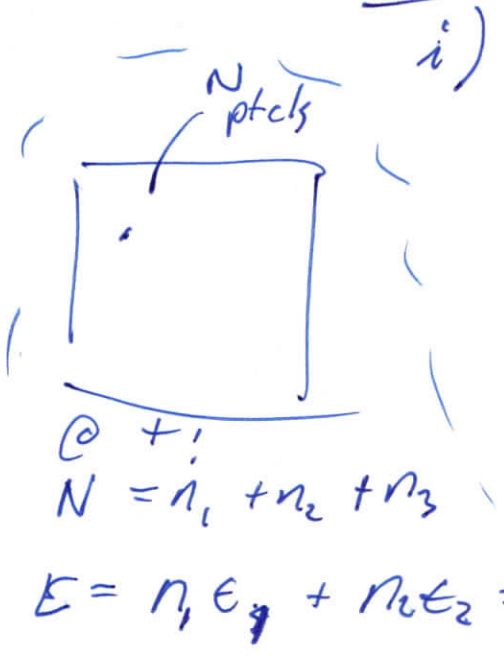 i)
N
ptcls
@ t:
N = n₁ + n₂ + n₃
E = n₁ ϵ₁ + n₂ ϵ₂